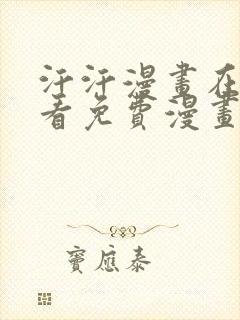 汗汗漫畫在
看免費漫畫
竇應泰